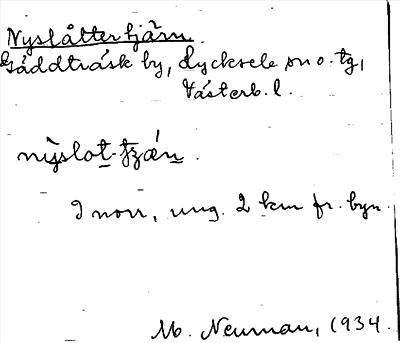 Nyslåttertjärn.
Gäddträsk by, Lycksele sn o. tg,
Västerb. l.
nyslot-tjæn.
I norr, ung. 2 km fr. byn.
M. Neuman, 1934.